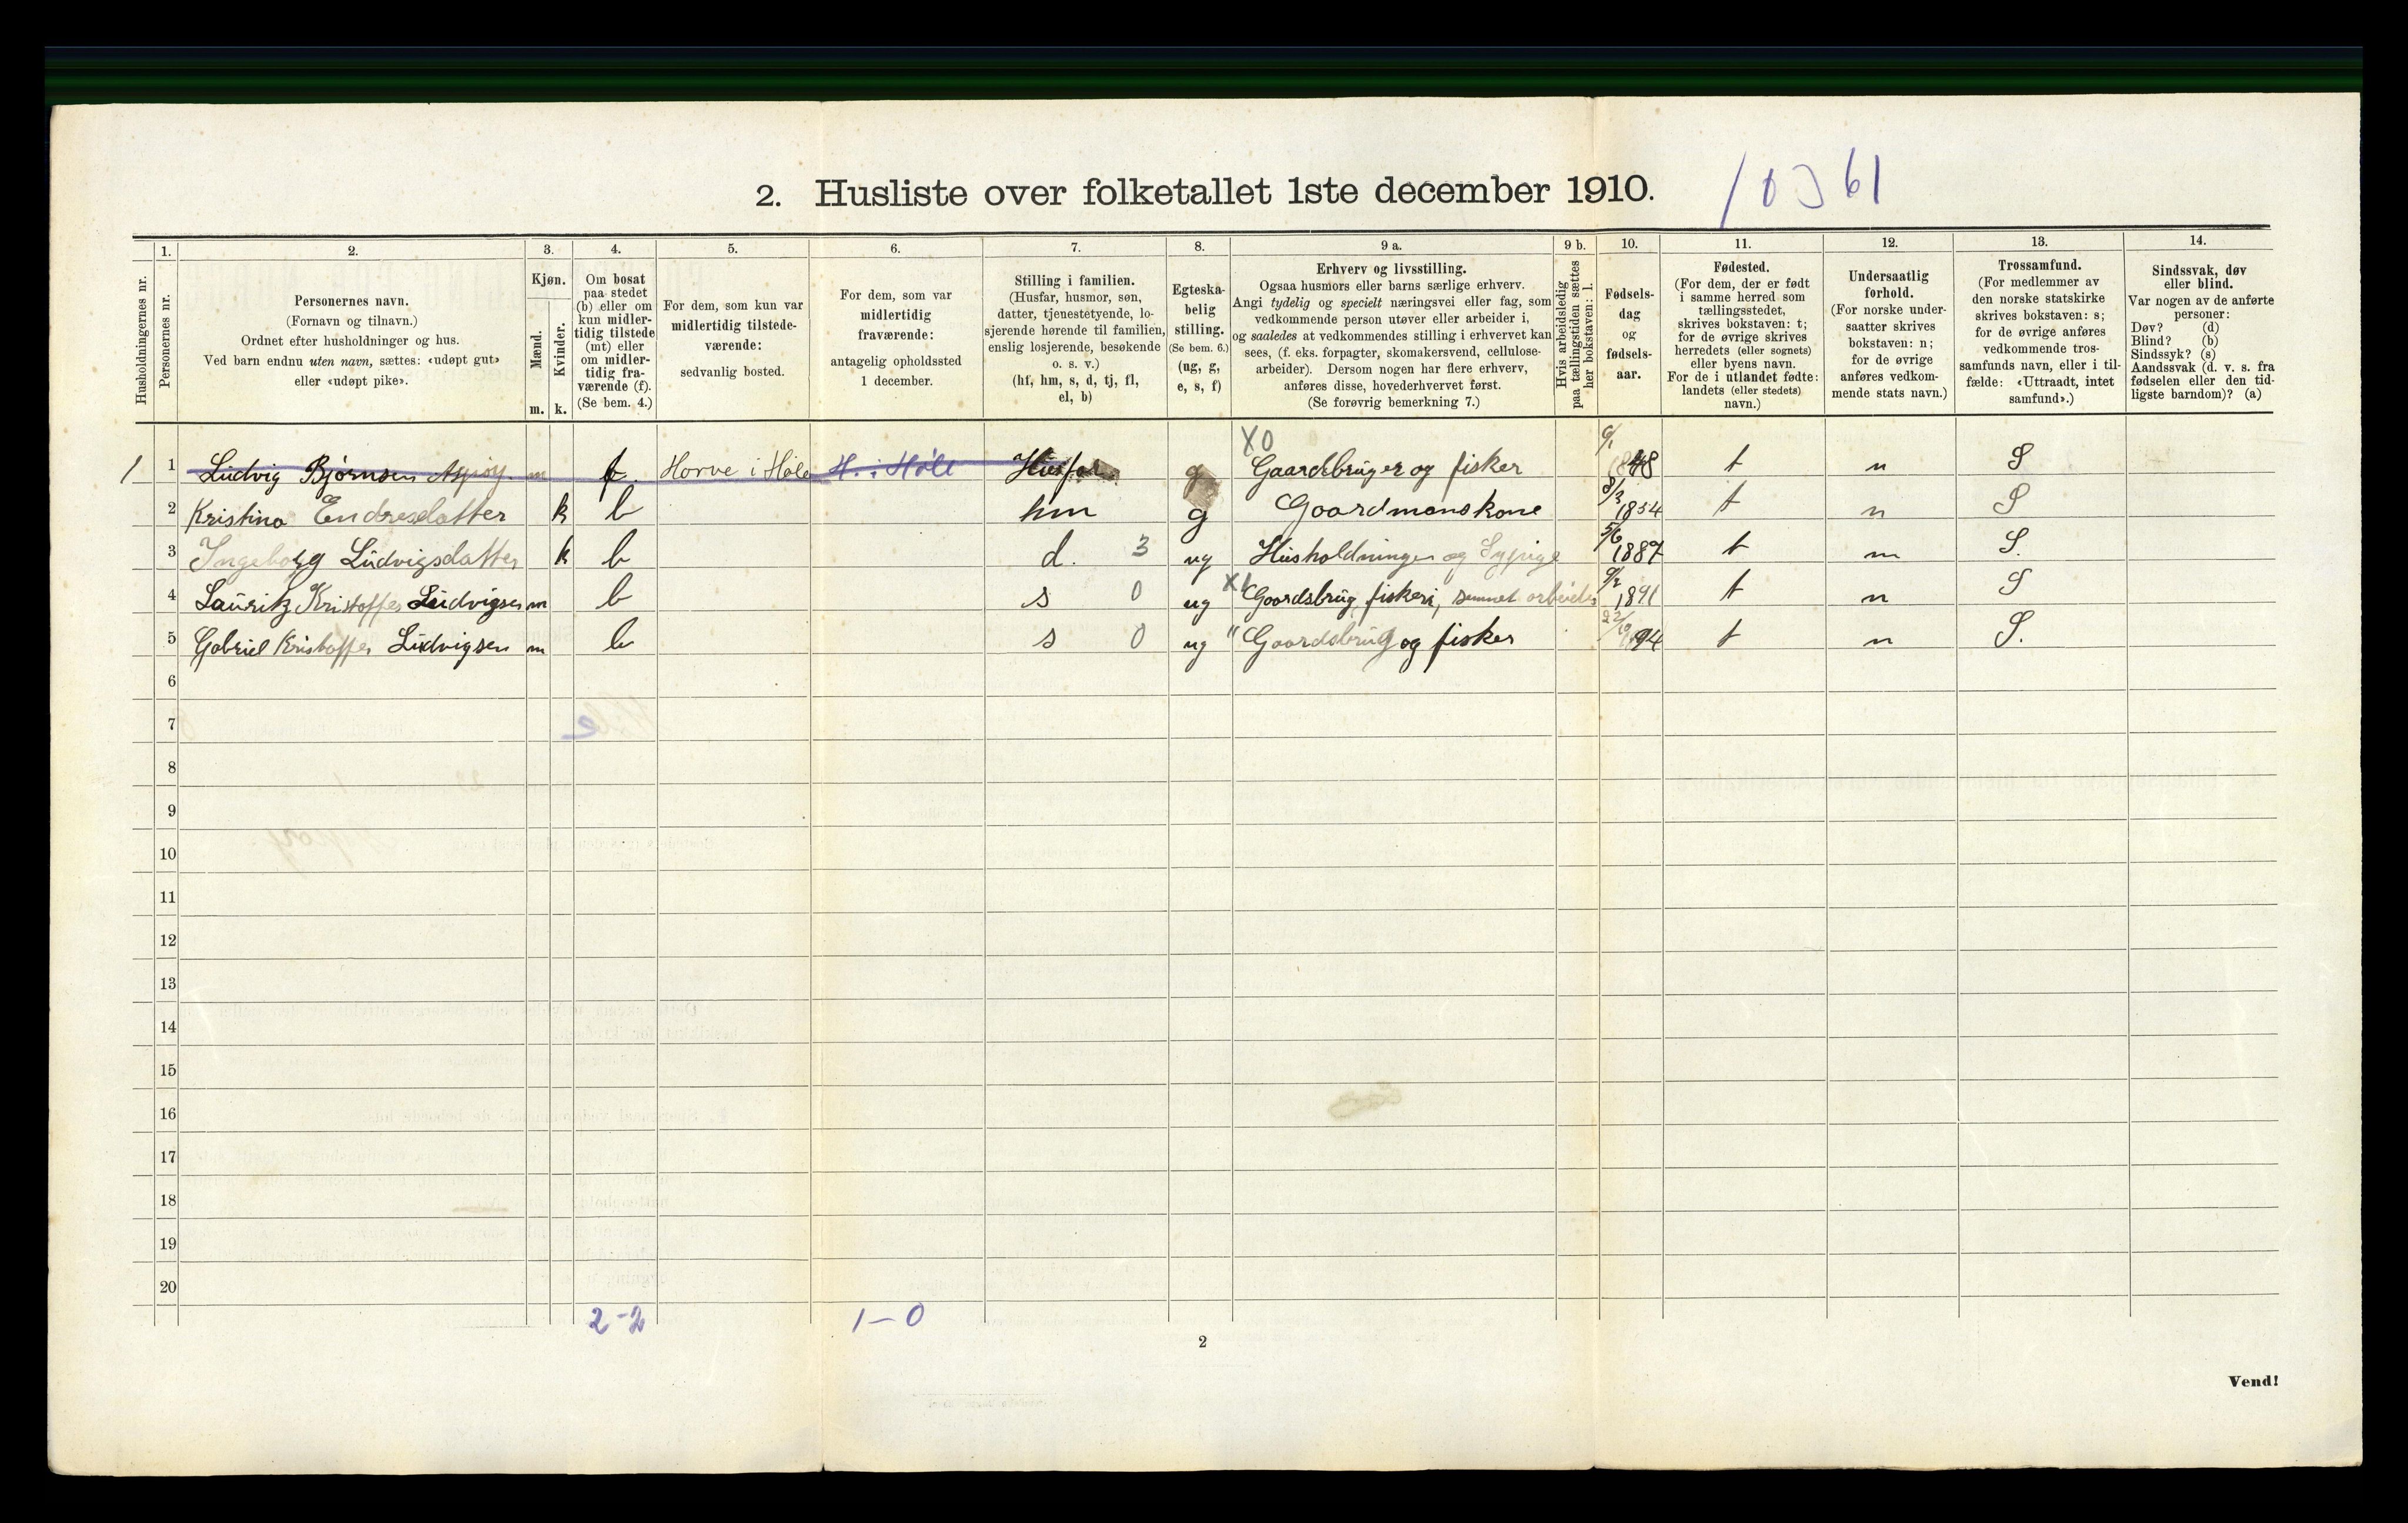 2. Husliste over folketallet 1ste december 1910. 10361
Husholdningernes nr.
1.
Personernes nr.
2.
Personernes navn.
(Fornavn og tilnavn.)
Ordnet efter husholdninger og hus.
Ved barn endnu uten navn, sættes: «udøpt gut»
eller «udøpt pike».
3.
Kjøn.
Mænd.
Kvinder.
m. k.
4.
Om bosat
paa stedet
(b) eller om
kun midler-
tidig tilstede
(mt) eller
om midler-
tidig fra-
værende (f).
(Se bem. 4.)
5.
For dem, som kun var
midlertidig tilstede-
værende:
sedvanlig bosted.
6.
For dem, som var
midlertidig
fraværende:
antagelig opholdssted
1 december.
7.
Stilling i familien.
(Husfar, husmor, søn,
datter, tjenestetyende, lo-
sjerende hørende til familien,
enslig losjerende, besøkende
o. s. v.)
(hf, hm, s, d, tj, fl,
el, b)
8.
Egteska-
belig
stilling.
(Se bem. 6.)
(ug, g,
e, s, f)
9 a.
Erhverv og livsstilling.
Ogsaa husmors eller barns særlige erhverv.
Angi tydelig og specielt næringsvei eller fag, som
vedkommende person utøver eller arbeider i,
og saaledes at vedkommendes stilling i erhvervet kan
sees, (f. eks. forpagter, skomakersvend, cellulose-
arbeider). Dersom nogen har flere erhverv,
anføres disse, hovederhvervet først.
(Se forøvrig bemerkning 7.)
9 b.
Hvis arbeidsledig
paa tællingstiden sættes
her bokstaven: l.
10.
Fødsels-
dag
og
fødsels-
aar.
11.
Fødested.
(For dem, der er født
i samme herred som
tællingsstedet,
skrives bokstaven: t;
for de øvrige skrives
herredets (eller sognets)
eller byens navn.
For de i utlandet fødte:
landets (eller stedets)
navn.)
12.
Undersaatlig
forhold.
(For norske under-
saatter skrives
bokstaven: n;
for de øvrige
anføres vedkom-
mende stats navn.)
13.
Trossamfund.
(For medlemmer av
den norske statskirke
skrives bokstaven: s;
for de øvrige anføres
vedkommende tros-
samfunds navn, eller i til-
fælde: «Uttraadt, intet
samfund».)
14.
Sindssvak, døv
eller blind.
Var nogen av de anførte
personer:
Døv? (d)
Blind? (b)
Sindssyk? (s)
Aandssvak (d. v. s. fra
fødselen eller den tid-
ligste barndom)? (a)
X0
1 1 Ludvig Bjørnsen Aspøy m f. Horve i Høle H. i Høle Husfar g Gaardsbruger og fisker 1848 t n S
2 Kristina Endresdatter k b hm g Goordmanskone 8/3 1854 t n S
3 Ingeborg Ludvigsdatter k b d. 3 ug Husholdningen og Sypige 5/6 1887 t n S.
4 Lauritz Kristoffer Ludvigsen m b s 0 ug Goordsbrug, fiskeri, 9/2 1891 t n S
5 Gabriel Kristoffer Ludvigsen m b s 0 ug " Goordsbrug og fisker 94 t n S.
6
7
8
9
10
11
12
13
14
15
16
17
18
19
20
2-2 1-0
2
Vend!